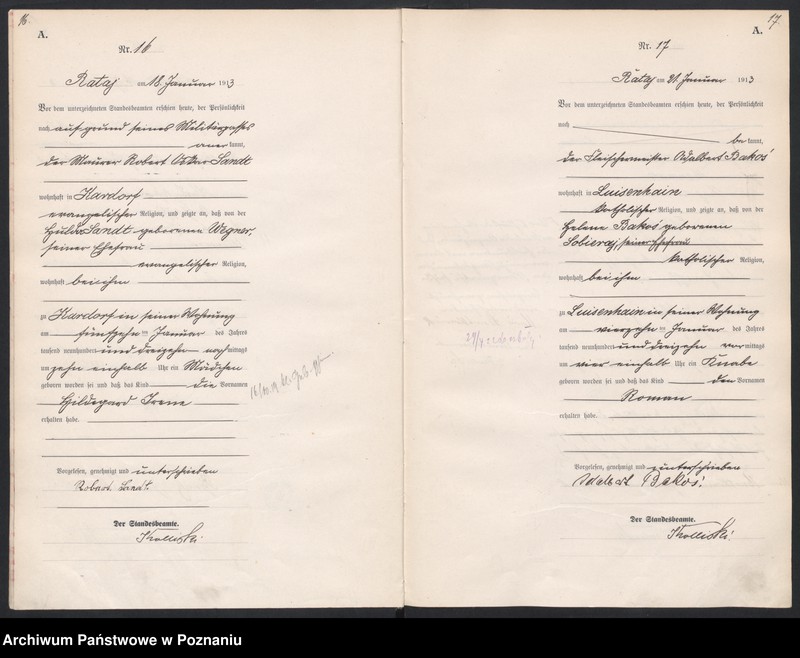 16.
A.
Nr. 16
Rataj am 18. Januar 1913
Vor dem unterzeichneten Standesbeamten erschien heute, der Persönlichkeit
nach auf grund seines Militärpasses
aner kannt,
der Maurer Robert Oskar Sandt
wohnhaft in Kardorf
evangelischer Religion, und zeigte an, daß von der
Hulda Sandt geborenen Wegner,
seiner Ehefrau
evangelischer Religion,
wohnhaft bei ihm
zu Kardorf in seiner Wohnung
am fünfzehn ten Januar des Jahres
tausend neunhundert und dreizehn nachmittags
um zehn einhalb Uhr ein Mädchen
geboren worden sei und daß das Kind die Vornamen
Hildegard Irene
erhalten habe.
Vorgelesen, genehmigt und unterschrieben
Robert Sandt.
Der Standesbeamte.
17.
A.
Nr. 17
Rataj am 21. Januar 1913
Vor dem unterzeichneten Standesbeamten erschien heute, der Persönlichkeit
nach
be kannt,
der Fleischermeister Adalbert Bakoś
wohnhaft in Luisenhain
katholischer Religion, und zeigte an, daß von der
Helene Bakoś geborenen
Sobieraj, seiner Ehefrau
katholischer Religion,
wohnhaft bei ihm
zu Luisenhain in seiner Wohnung
am vierzehn ten Januar des Jahres
tausend neunhundert und dreizehn vormittags
um vier einhalb Uhr ein Knabe
geboren worden sei und daß das Kind den Vornamen
Roman
erhalten habe.
Vorgelesen, genehmigt und unterschrieben
Adalbert Bakoś.
Der Standesbeamte.
Archiwum Państwowe w Poznaniu